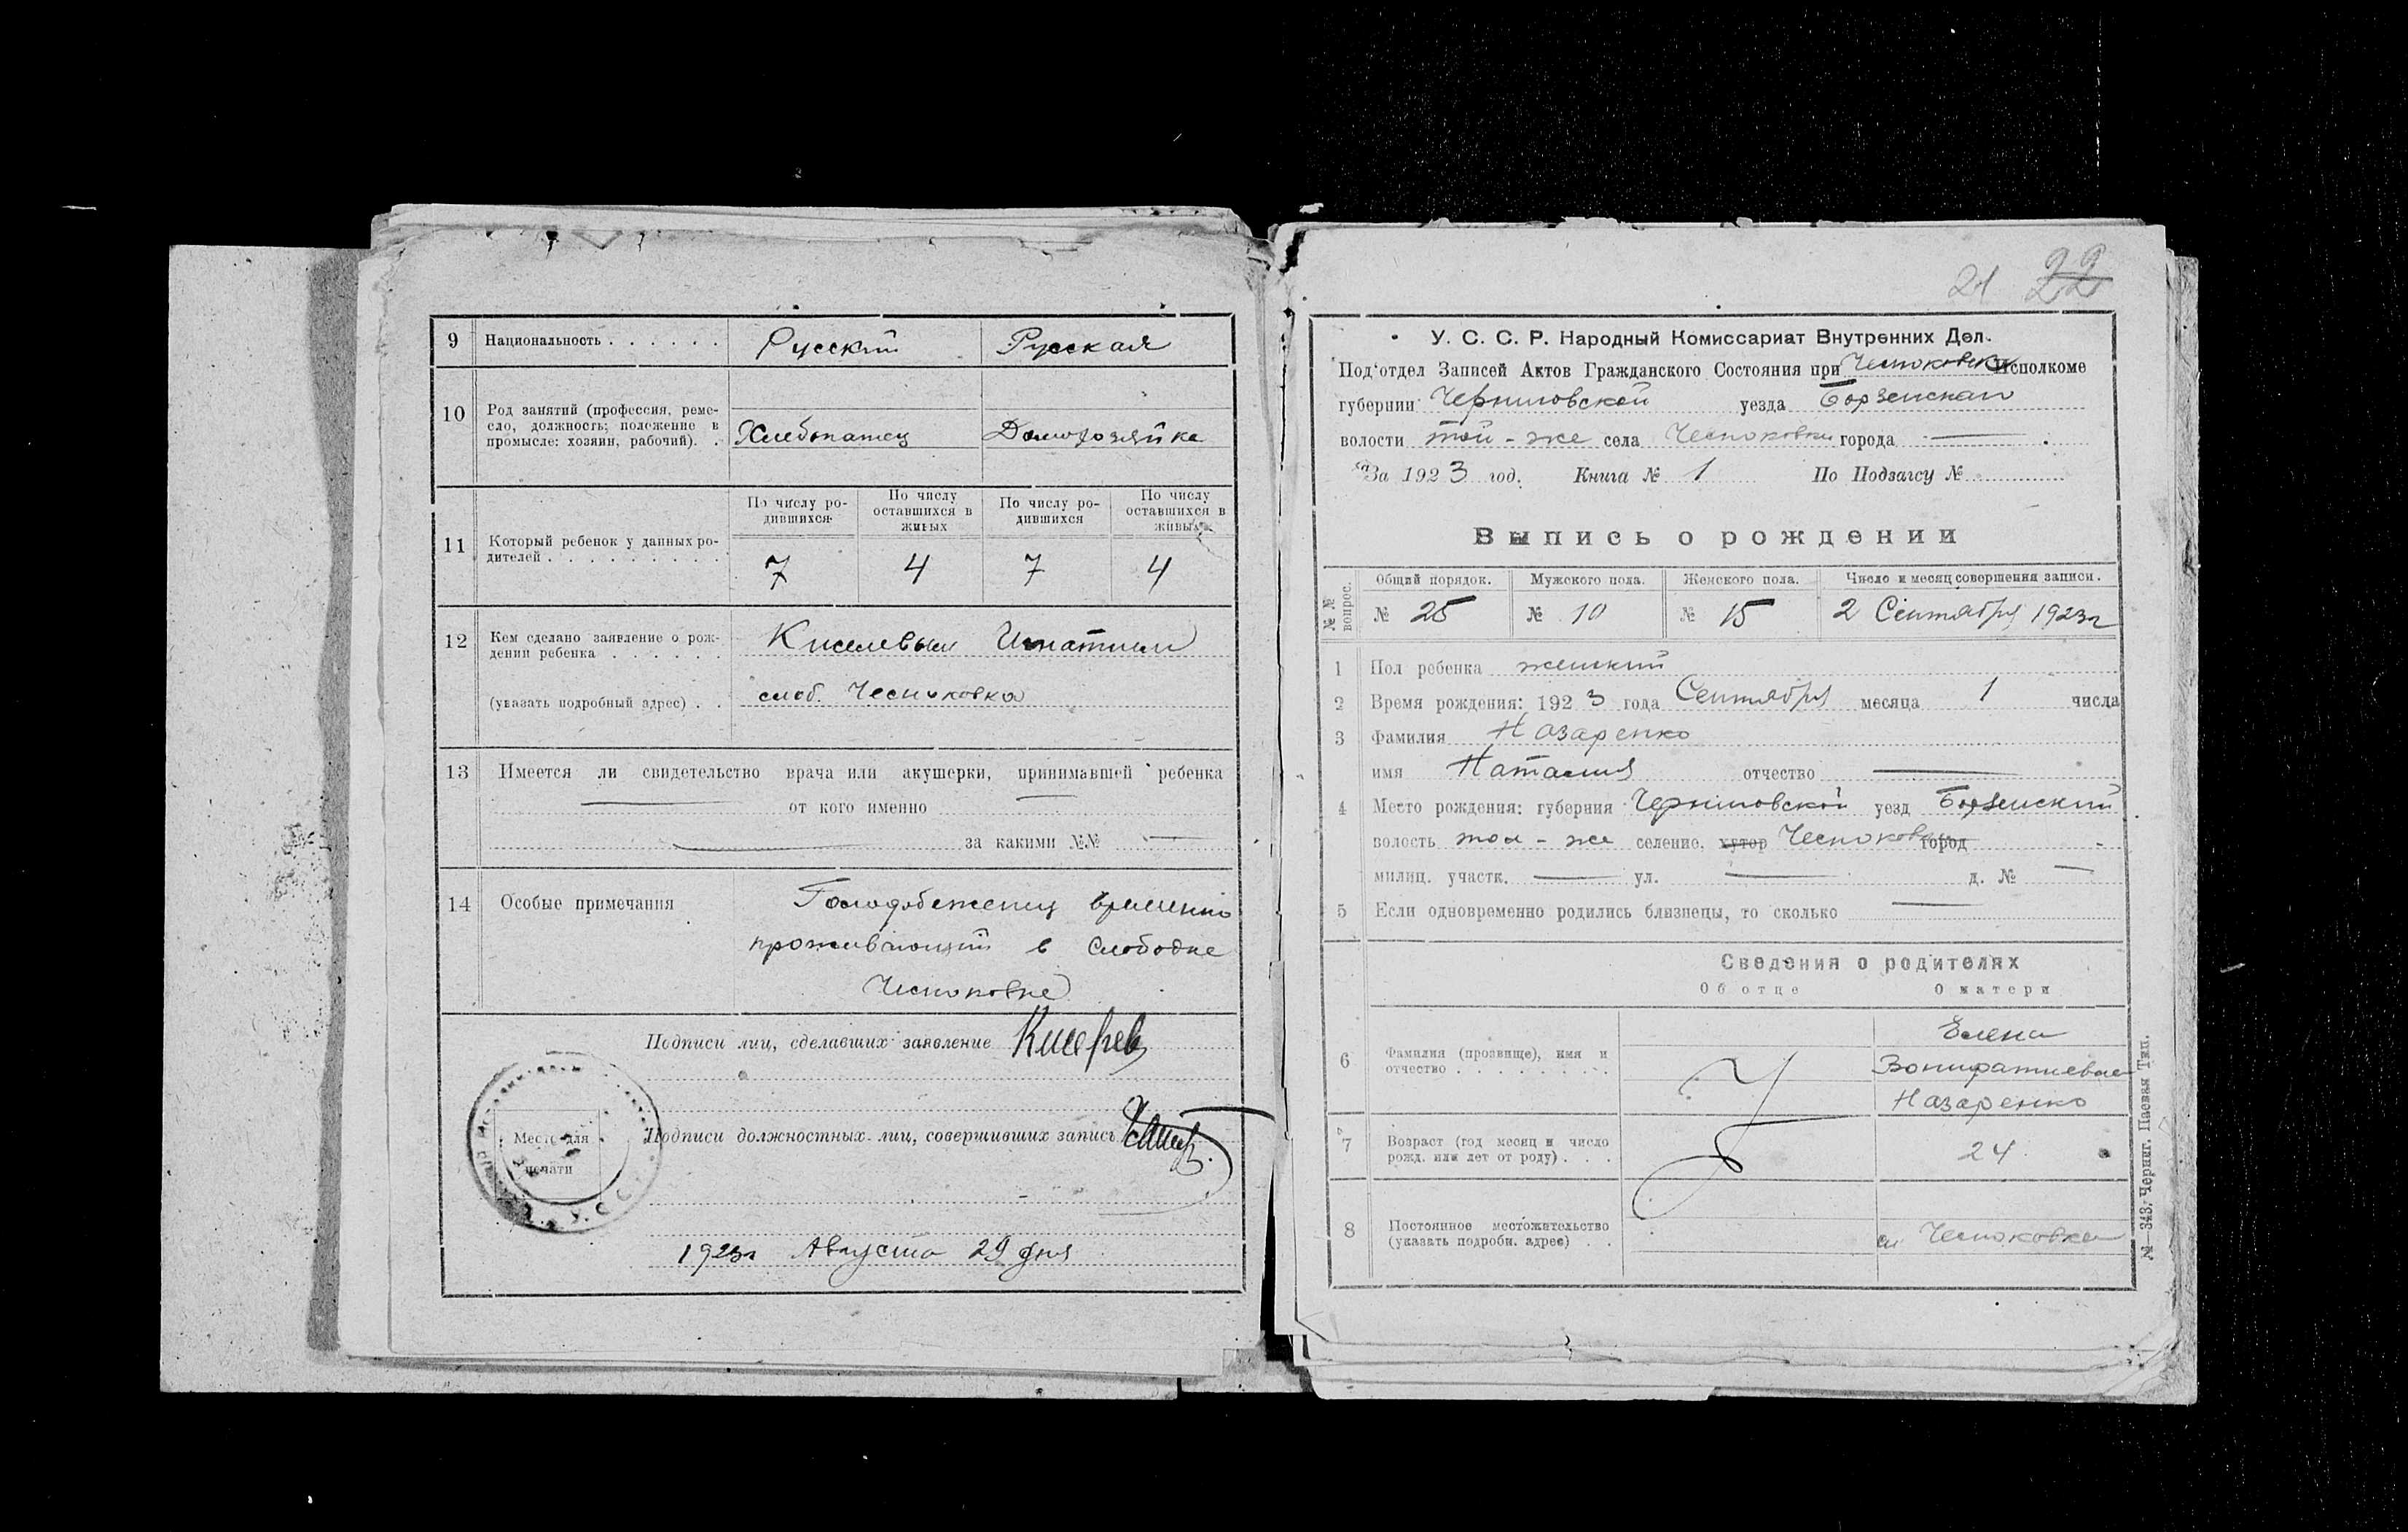 9 Национальность Русский Русская
10 Род занятий (профессия, реме-
сло, должность; положение в
промысле: хозяин, рабочий).
Хлебопашец Домохозяйка
По числу ро-
дившихся
По числу
оставшихся в
живых
По числу ро-
дившихся
По числу
оставшихся в
живых
11 Который ребенок у данных ро-
дителей
7 4 7 4
12 Кем сделано заявление о рож-
дении ребенка
Киселевым Игнатием
(указать подробный адрес) слоб. Чесноковка
13 Имеется ли свидетельство врача или акушерки, принимавшей ребенка
от кого именно
за какими №№
14 Особые примечания Голодобеженец временно
проживающий в Слободке
Чесноковке
Подписи лиц, сделавших заявление Киселев
Место для
печати
Подписи должностных лиц, совершивших запись
1923г Августа 29 дня
21 22
У. С. С. Р. Народный Комиссариат Внутренних Дел.
Под'отдел Записей Актов Гражданского Состояния при Чесноковск Исполкоме
губернии Черниговской уезда Борзенскаго
волости той-же села Чесноковки города
За 1923 год. Книга № 1 По Подзагсу №
Выпись о рождении
№№ вопрос.
Общий порядок. Мужского пола. Женского пола. Число и месяц совершения записи.
№ 25 № 10 № 15 2 Сентября 1923г
1 Пол ребенка женский
2 Время рождения: 1923 года Сентября месяца 1 числа
3 Фамилия Назаренко
имя Наталия отчество
4 Место рождения: губерния Черниговской уезд Борзенский
волость той-же селение, хутор Чесноковка город
милиц. участк. ул. д. №
5 Если одновременно родились близнецы, то сколько
Сведения о родителях
Об отце О матери
6 Фамилия (прозвище), имя и
отчество
Елена
Вонифатиевна
Назаренко
7 Возраст (год месяц и число
рожд. или лет от роду)
24
8 Постоянное местожительство
(указать подробн. адрес)
сл Чесноковка
№—343. Черниг. Паевая Тип.